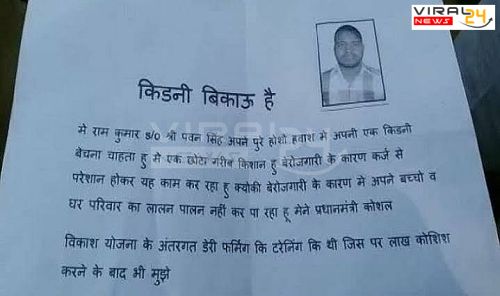 VIRAL 24
NEWS
किडनी बिकाऊ है
मे राम कुमार S/O श्री पवन सिंह अपने पुरे होशो हवाश मे अपनी एक किडनी
बेचना चाहता हु मे एक छोटा गरीब किशान हु बेरोजगारी के कारण कर्ज से
परेशान होकर यह काम कर रहा हु क्योकी बेरोजगारी के कारण मे अपने बच्चो व
घर परिवार का लालन पालन नहीं कर पा रहा हू मेने प्रधानमंत्री कोशल
विकाश योजना के अंतरगत डेरी फर्मिंग कि टरेनिंग कि थी जिस पर लाख कोशिश
करने के बाद भी मुझे